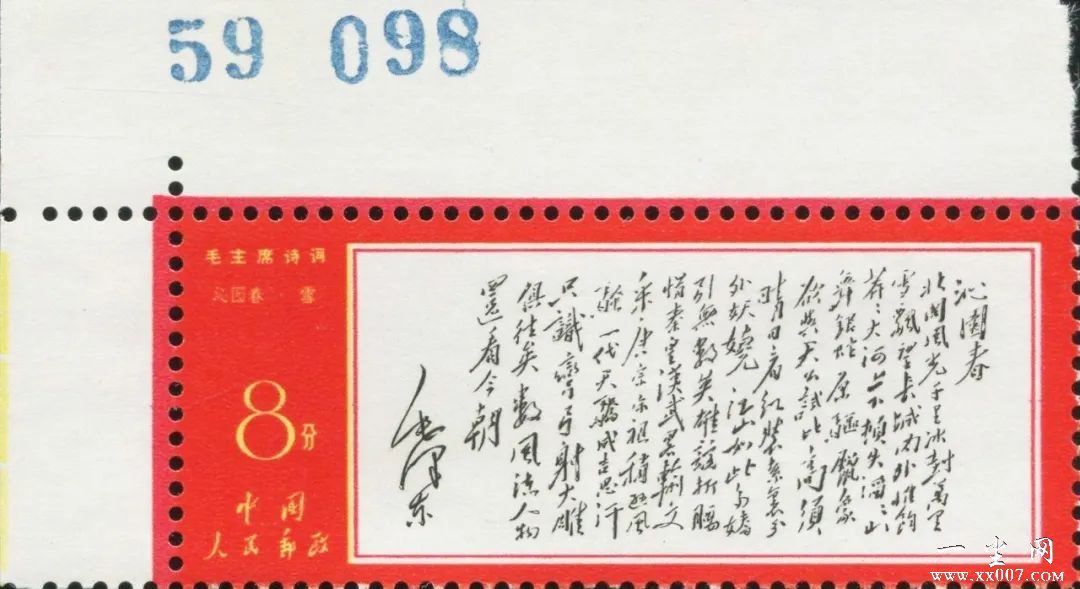 59 098
毛主席诗词
沁园春·雪
8分
中国
人民邮政
沁園春
北国風光千里冰封萬里
雪飄望長城内外惟餘
莽々大河上下頓失滔々山
舞銀蛇原驅臘象
欲與天公試比高須
晴日看红装素裹分
外妖娆江山如此多嬌
引無數英雄競折腰
惜秦皇漢武略輸文
采唐宗宋祖稍遜風
騷一代天驕成吉思汗
只識彎弓射大雕
俱往矣數風流人物
還看今朝
毛澤東
一尘网
www.xx007.com